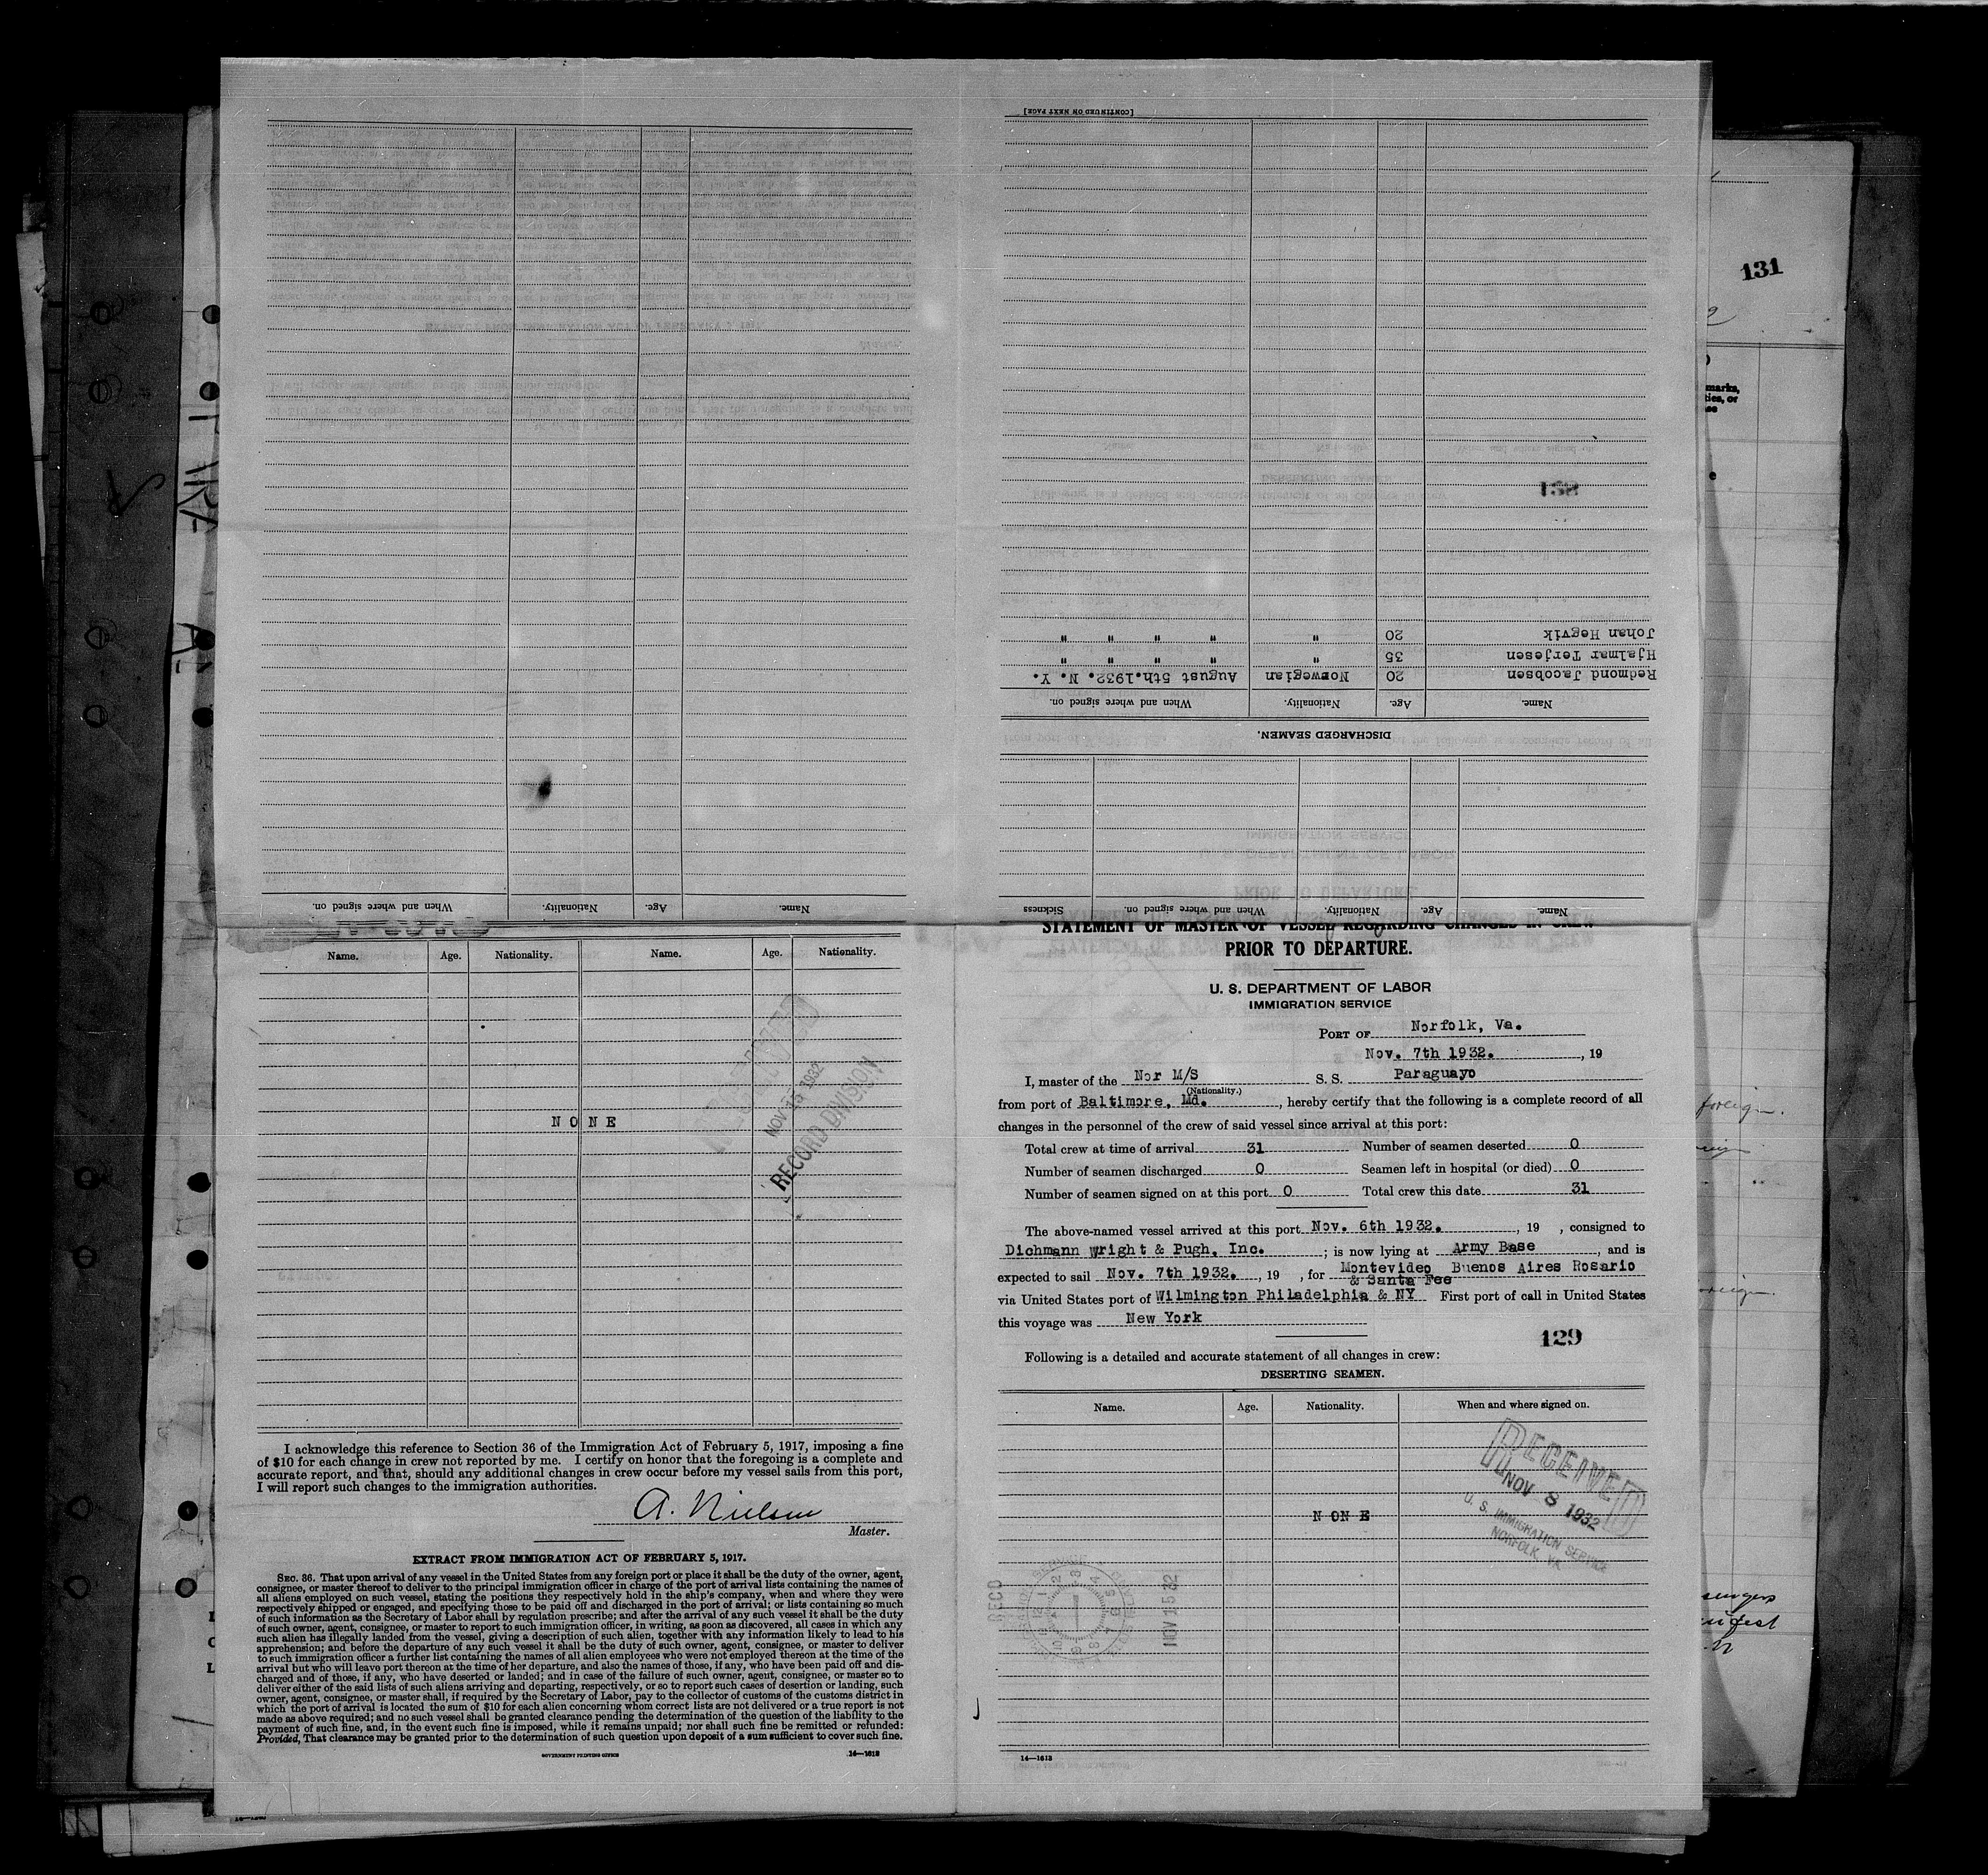 [CONTINUED ON NEXT PAGE]
131
marks,
ties, or
138
Johan Hegvik 20 " " " " "
Hjalmar Terjesen 35 " " " " "
Redmond Jacobsen 20 Norwegian August 5th.1932. N. Y.
Name. Age. Nationality. When and where signed on.
DISCHARGED SEAMEN.
Name. Age. Nationality. When and where signed on.
Name. Age. Nationality. When and where signed on. Sickness
STATEMENT OF MASTER OF VESSEL REGARDING CHANGES IN CREW
PRIOR TO DEPARTURE.
U. S. DEPARTMENT OF LABOR
IMMIGRATION SERVICE
PORT OF Norfolk, Va.
Nov. 7th 1932. , 19
I, master of the Nor M/S S. S. Paraguayo
(Nationality.)
from port of Baltimore, Md. , hereby certify that the following is a complete record of all
changes in the personnel of the crew of said vessel since arrival at this port:
Total crew at time of arrival 31 Number of seamen deserted 0
Number of seamen discharged 0 Seamen left in hospital (or died) 0
Number of seamen signed on at this port 0 Total crew this date 31
The above-named vessel arrived at this port Nov. 6th 1932. , 19 , consigned to
Dichmann Wright & Pugh, Inc. ; is now lying at Army Base , and is
expected to sail Nov. 7th 1932. , 19 , for Montevideo Buenos Aires Rosario
& Santa Fee
via United States port of Wilmington Philadelphia & NY First port of call in United States
this voyage was New York
129
Following is a detailed and accurate statement of all changes in crew:
DESERTING SEAMEN.
Name. Age. Nationality. When and where signed on.
RECEIVED
NOV 8 1932
U. S. IMMIGRATION SERVICE
NORFOLK, VA.
NONE
REC'D
NOV 15 32
14—1613
Name. Age. Nationality. Name. Age. Nationality.
NOV 15 1932
RECORD DIVISION
NONE
I acknowledge this reference to Section 36 of the Immigration Act of February 5, 1917, imposing a fine
of $10 for each change in crew not reported by me. I certify on honor that the foregoing is a complete and
accurate report, and that, should any additional changes in crew occur before my vessel sails from this port,
I will report such changes to the immigration authorities.
A. Nielsen
Master.
EXTRACT FROM IMMIGRATION ACT OF FEBRUARY 5, 1917.
SEC. 36. That upon arrival of any vessel in the United States from any foreign port or place it shall be the duty of the owner, agent,
consignee, or master thereof to deliver to the principal immigration officer in charge of the port of arrival lists containing the names of
all aliens employed on such vessel, stating the positions they respectively hold in the ship's company, when and where they were
respectively shipped or engaged, and specifying those to be paid off and discharged in the port of arrival; or lists containing so much
of such information as the Secretary of Labor shall by regulation prescribe; and after the arrival of any such vessel it shall be the duty
of such owner, agent, consignee, or master to report to such immigration officer, in writing, as soon as discovered, all cases in which any
such alien has illegally landed from the vessel, giving a description of such alien, together with any information likely to lead to his
apprehension; and before the departure of any such vessel it shall be the duty of such owner, agent, consignee, or master to deliver
to such immigration officer a further list containing the names of all alien employees who were not employed thereon at the time of the
arrival but who will leave port thereon at the time of her departure, and also the names of those, if any, who have been paid off and dis-
charged and of those, if any, who have deserted or landed; and in case of the failure of such owner, agent, consignee, or master so to
deliver either of the said lists of such aliens arriving and departing, respectively, or so to report such cases of desertion or landing, such
owner, agent, consignee, or master shall, if required by the Secretary of Labor, pay to the collector of customs of the customs district in
which the port of arrival is located the sum of $10 for each alien concerning whom correct lists are not delivered or a true report is not
made as above required; and no such vessel shall be granted clearance pending the determination of the question of the liability to the
payment of such fine, and, in the event such fine is imposed, while it remains unpaid; nor shall such fine be remitted or refunded:
Provided, That clearance may be granted prior to the determination of such question upon deposit of a sum sufficient to cover such fine.
GOVERNMENT PRINTING OFFICE
14—1613